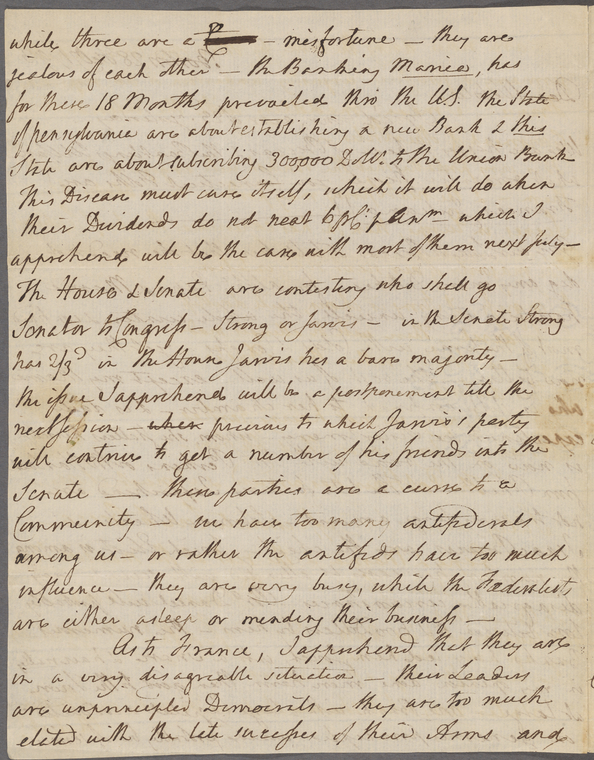 while three are a - misfortune - they are
jealous of each other - the Banking Maniea, has
for these 18 Months prevailed thro the U.S. the State
of pensylvania are about establishing a new Bank & this
State are about subscribing 300,000 Dolls. to the Union Bank
This Disease must cure itself, which it will do when
their Dividends do not neat 6 pCt p Annm which I
apprehend will be the case with most of them next July -
The House & Senate are contesting who shall go
Senator to Congress - Strong or Jarvis - in the Senate Strong
has 2/3d in the House Jarvis has a bare majority -
the issue I apprehend will be a postponement till the
next Session - when previous to which Jarvis's party
will contrive to get a number of his friends into the
Senate - these parties are a curse to a
Community - we have too many antifederals
among us - or rather the antifeds have too much
influence - they are very busy, while the Fœderalists
are either asleep or mending their business -
As to France, I apprehend that they are
in a very disagreable situation - their Leaders
are unprincipled Democrats - they are too much
elated with the late successes of their Arms and